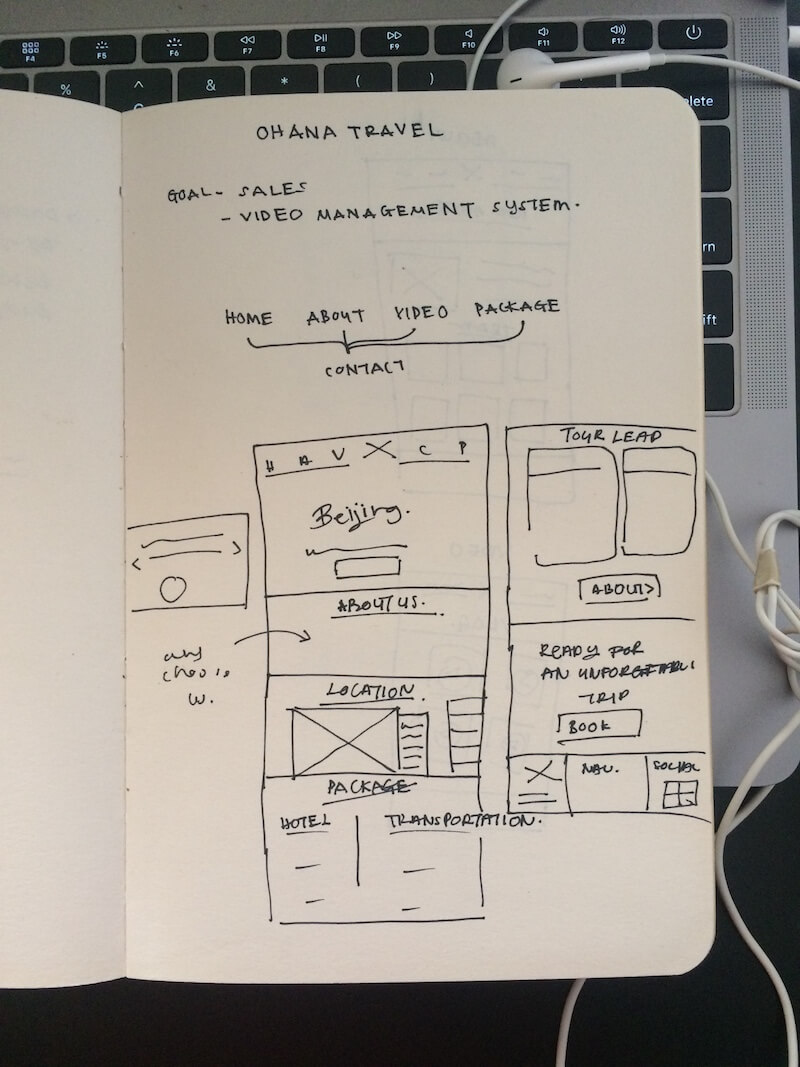 F4
F5
F6
F7
F8
F9
F10
F11
F12
%
^
&
*
(
)
elete
rn
ift
OHANA TRAVEL
GOAL- SALES
- VIDEO MANAGEMENT SYSTEM.
HOME ABOUT VIDEO PACKAGE
CONTACT
H A V C P
Beijing.
ABOUT US.
any
choo
w.
LOCATION.
PACKAGE
HOTEL TRANSPORTATION.
TOUR LEAD
ABOUT>
READY FOR
AN UNFORGETABLE
TRIP
BOOK
NAV. SOCIAL